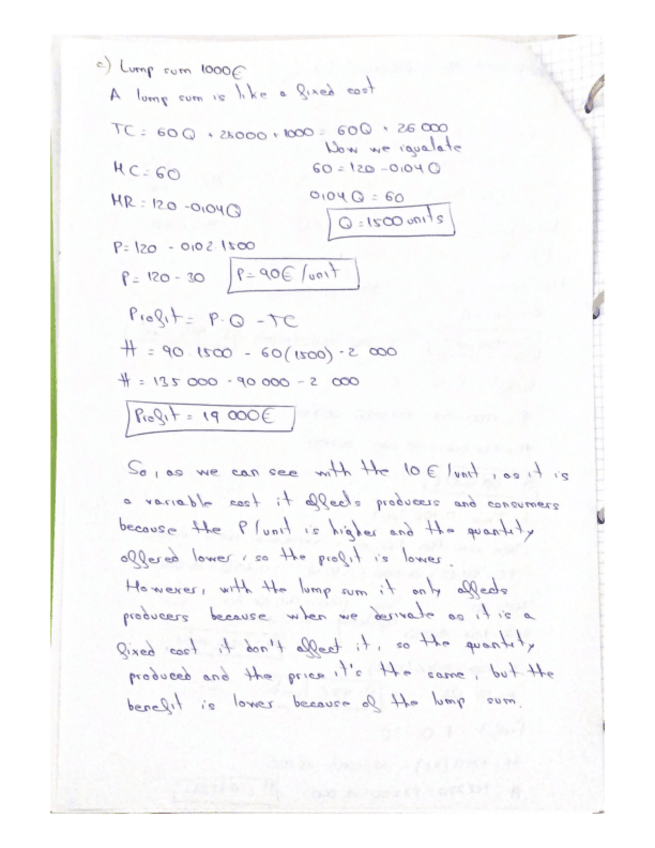 c) Lump sum 1000€
A lump sum is like a fixed cost
TC = 60Q + 25000 + 1000 = 60Q + 26 000
Now we igualate
MC = 60
60 = 120 - 0'04Q
MR = 120 - 0'04Q
0'04Q = 60
Q = 1500 units
P = 120 - 0'02·1500
P = 120 - 30
P = 90€/unit
Profit = P·Q - TC
π = 90·1500 - 60(1500) - 2 000
π = 135 000 - 90 000 - 2 000
Profit = 19 000€
So, as we can see with the 10€/unit, as it is
a variable cost it affects producers and consumers
because the P/unit is higher and the quantity
offered lower, so the profit is lower.
However, with the lump sum it only affects
producers because when we derivate as it is a
fixed cost it don't affect it, so the quantity
produced and the price it's the same, but the
benefit is lower because of the lump sum.